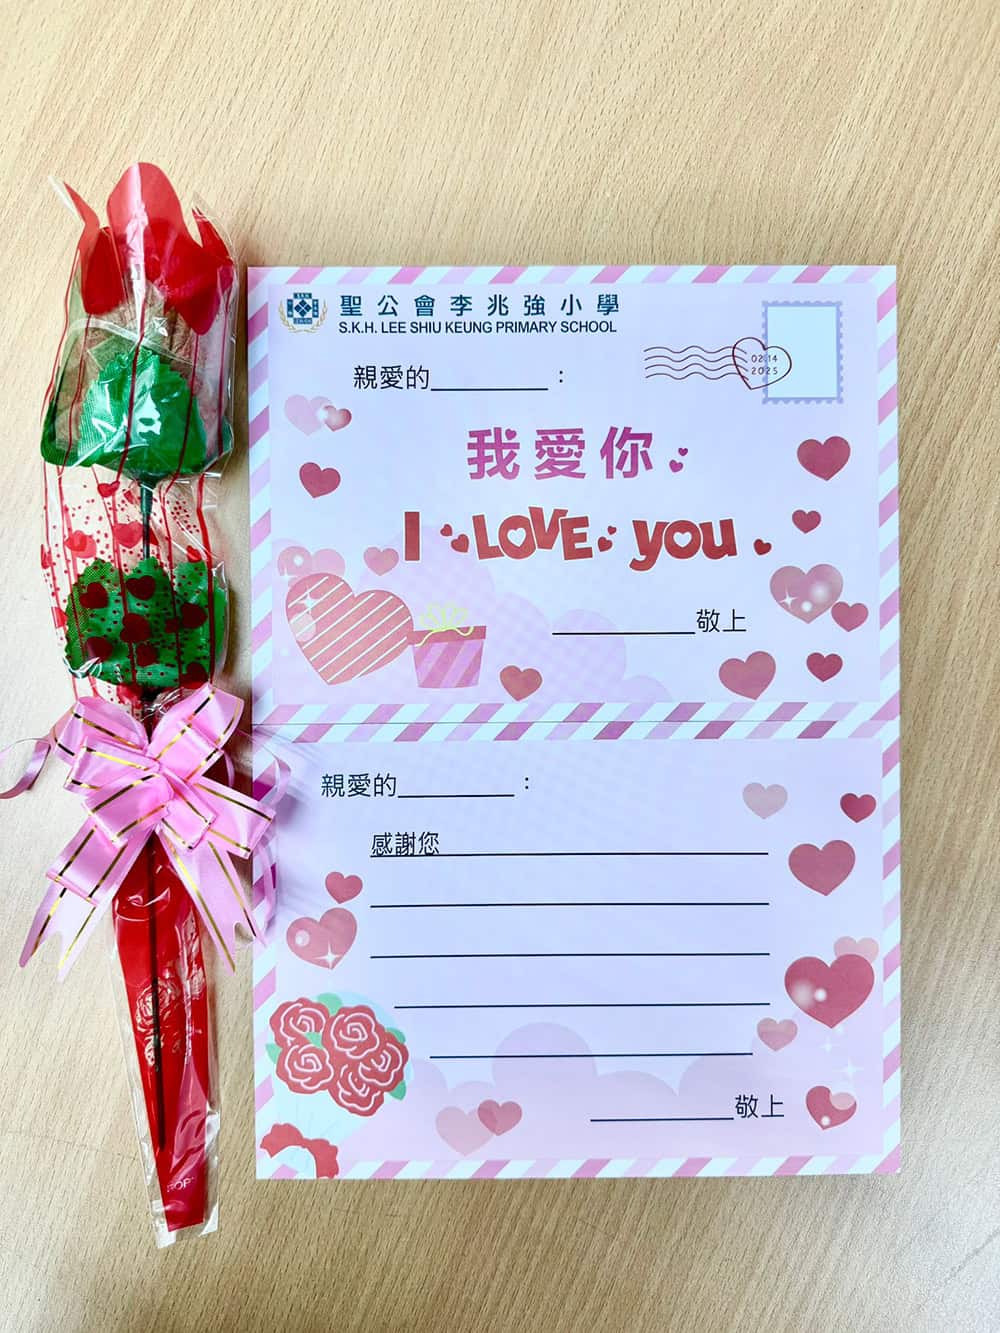 聖公會李兆強小學
S.K.H. LEE SHIU KEUNG PRIMARY SCHOOL
02.14
2025
親愛的_________：
我愛你
I LOVE YOU
___________敬上
親愛的_________：
感謝您
___________敬上